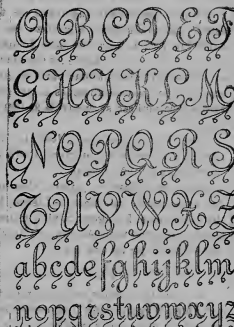 A B C D E F
G H I K L M
N O P Q R S
T U V W X Z
abcdefghijklm
nopqrstuvwxyz